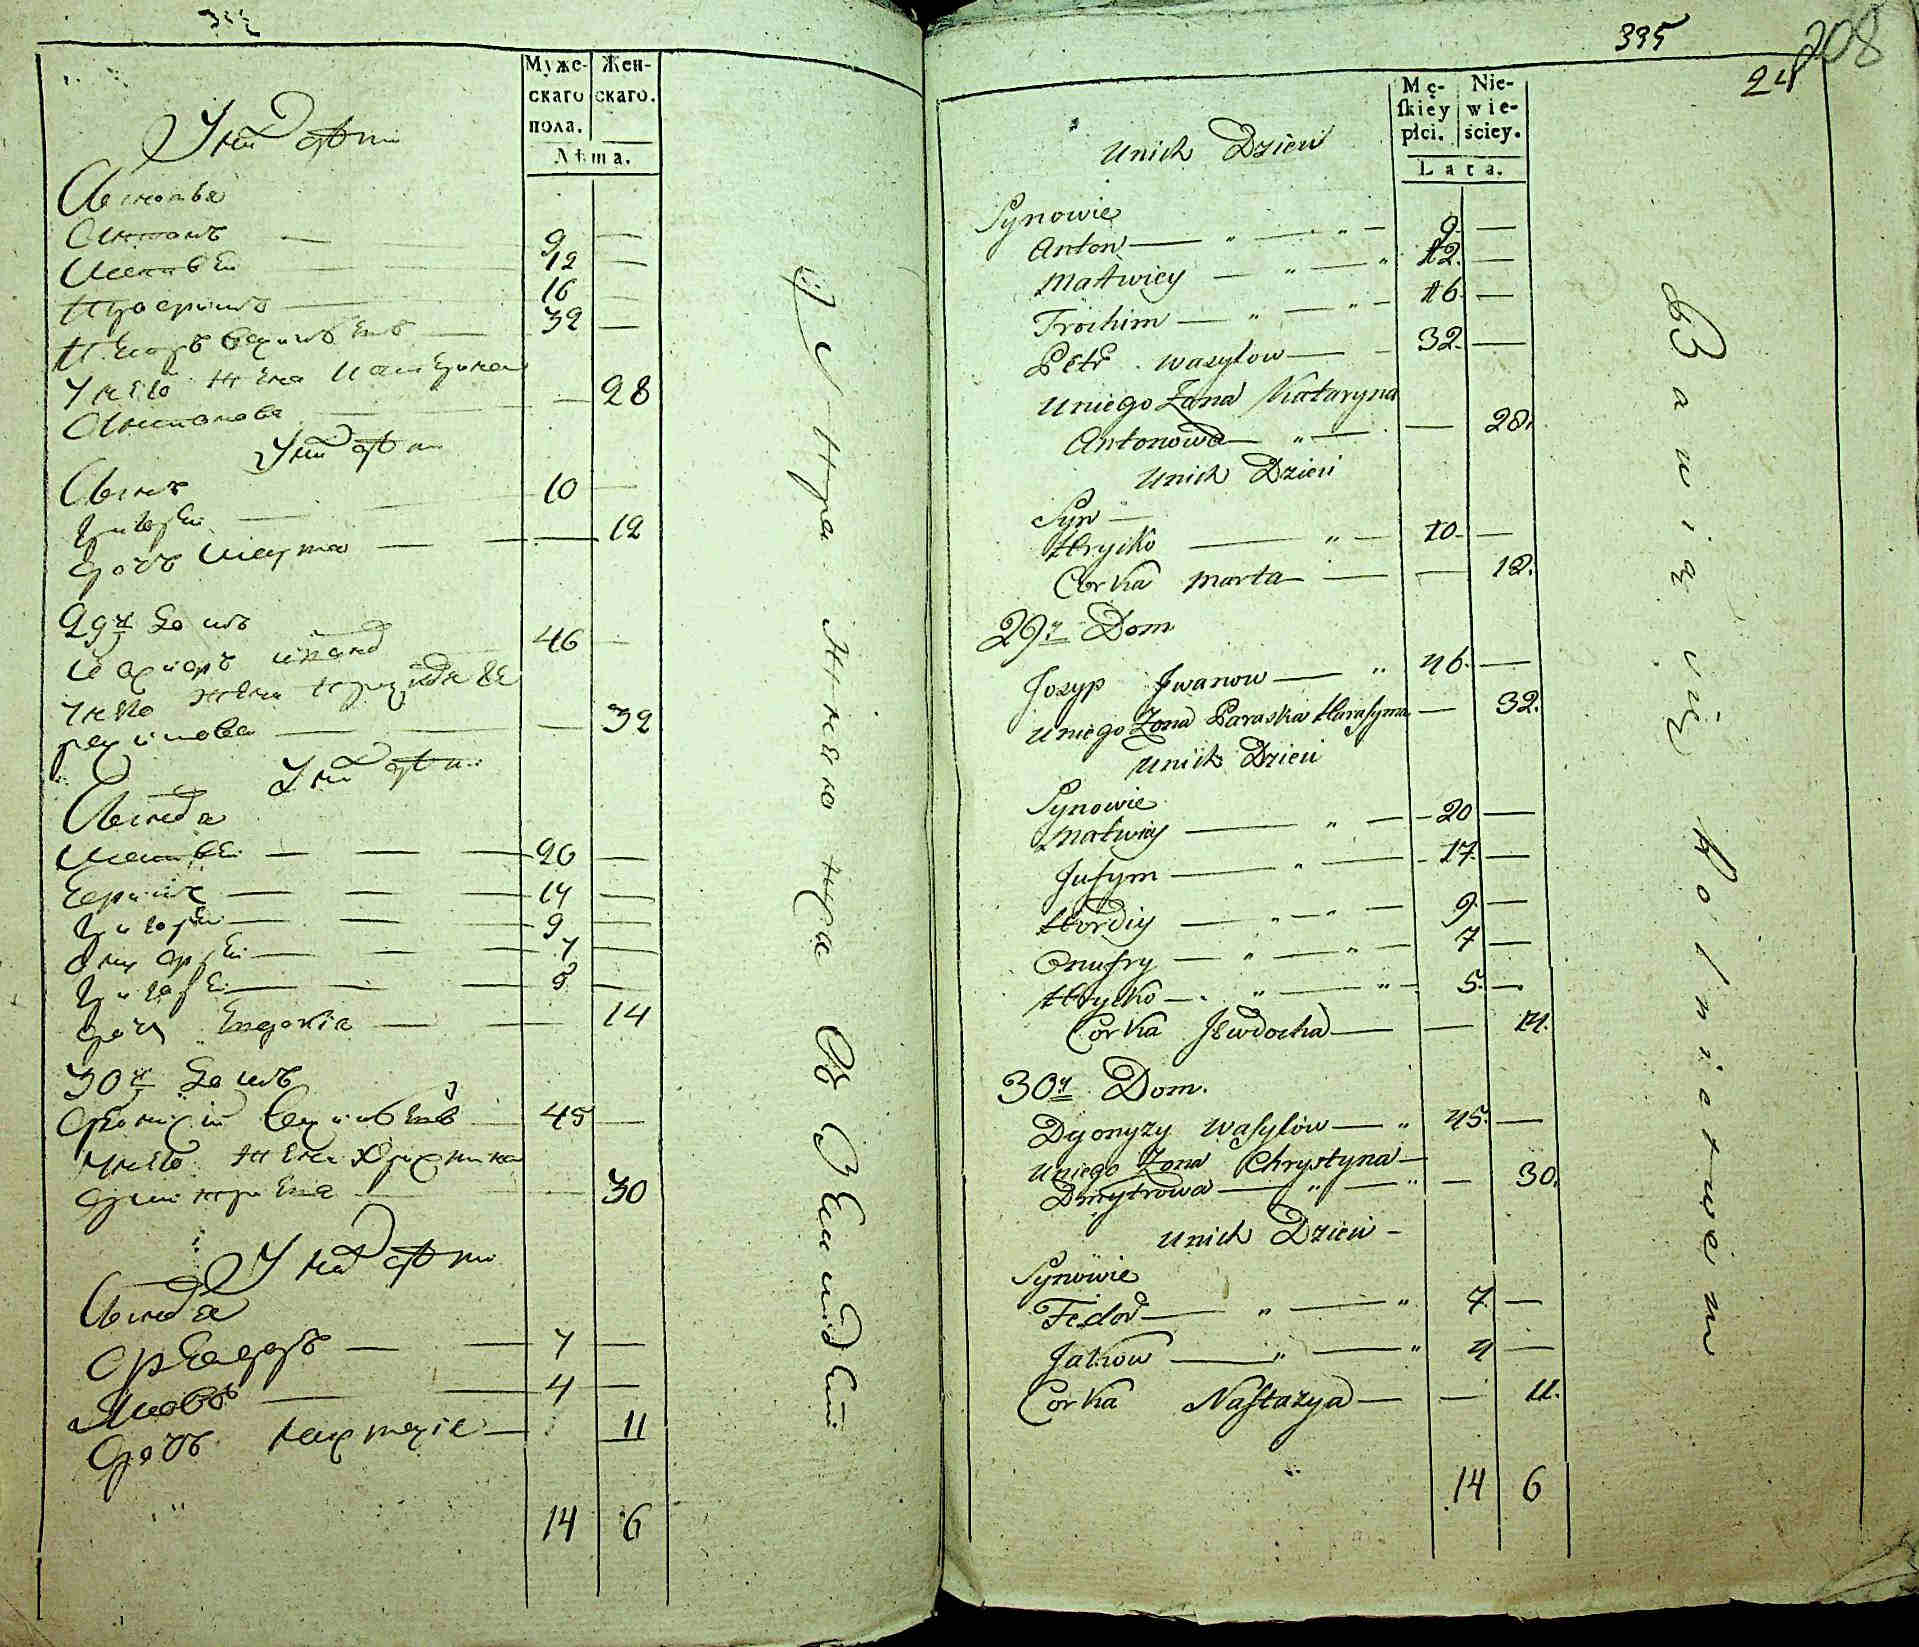 Муже-
скаго
пола.
Жен-
скаго.
Лѣта.
У них дѣти
Сыновья
Антонъ — 9 —
Матвей — 12 —
Трофимъ — 16 —
Петръ Василиевъ — 32 —
У него жена Катерина
Антонова — 28
У них дѣти
Сынъ 10 —
Григорей —
Дочь Марта — 12
29й Домъ
Иванов 46 —
У него жена
— 32
У них дѣти
Сыновя
Матвей — 20 —
Ефимъ — 17 —
— 9 —
Онуфрей — 7 —
Григорей — 5 —
Дочь Евдокия — 14
30й Домъ
Деонисий Василиевъ — 45 —
У него жена Христина
Дмитриева — 30
У них дѣти
Сыновя
Феодоръ — 7 —
Яковъ — 4 —
Дочь Настасия — 11
14 6
335
208
24
Mę-
skiey
płci.
Nie-
wie-
ściey.
Lata.
Unich Dzieci
Synowie
Anton — 9. —
Matwiey — 12. —
Trochim — 16. —
Petr Wasylow — 32. —
Uniego Żona Kataryna
Antonowa — 28.
Unich Dzieci
Syn —
Hryćko — 10. —
Corka Marta — 12.
29y Dom
Jozyp Jwanow — 46. —
Uniego Żona Paraska Harasymo — 32.
Unich Dzieci
Synowie
Matwiey — 20 —
Jufym — 17. —
Hordiy — 9. —
Onufry — 7 —
Hryćko — 5. —
Corka Jewdocha — 14.
30y Dom.
Dyonyzy Wasylów — 45. —
Uniego Żona Chrystyna —
Dmytrowa — 30.
Unich Dzieci —
Synowie
Fedor — 7 —
Jakow — 4 —
Corka Nastazya — 11.
14 6
Bawią się Rolnictwem